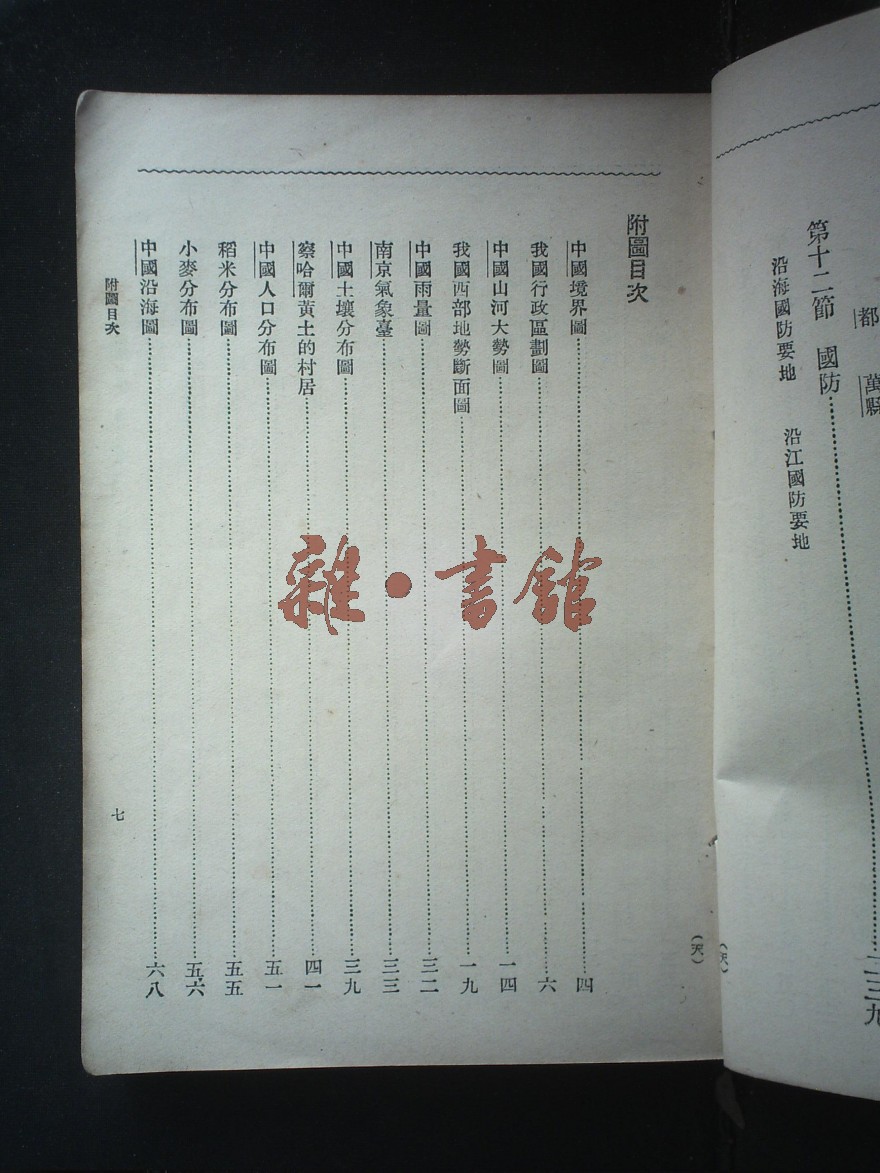 都
萬縣
第十二節　國防……二三九
沿海國防要地　沿江國防要地
附圖目次
中國境界圖……四
我國行政區劃圖……六
中國山河大勢圖……一四
我國西部地勢斷面圖……一九
中國雨量圖……三二
南京氣象臺……三三
中國土壤分布圖……三九
察哈爾黃土的村居……四一
中國人口分布圖……五一
稻米分布圖……五五
小麥分布圖……五六
中國沿海圖……六八
附圖目次
七
(天)
雜·書館